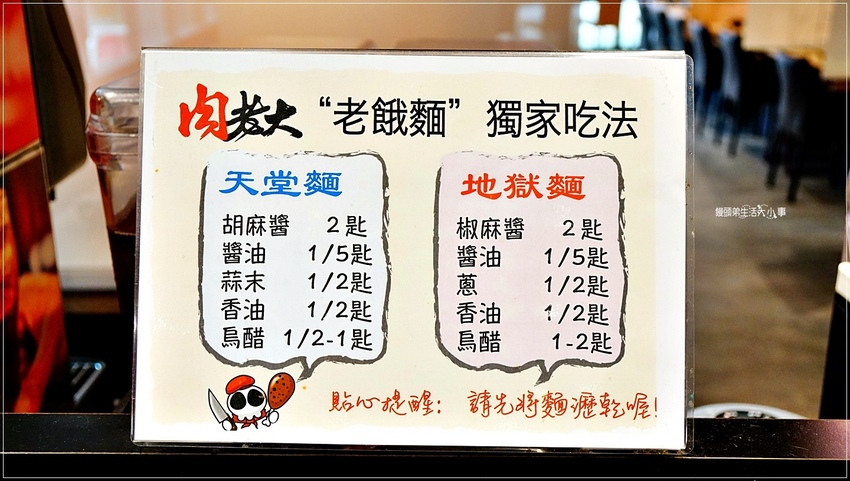 肉老大 “老餓麵” 獨家吃法
天堂麵
胡麻醬 2匙
醬油 1/5匙
蒜末 1/2匙
香油 1/2匙
烏醋 1/2-1匙
地獄麵
椒麻醬 2匙
醬油 1/5匙
蔥 1/2匙
香油 1/2匙
烏醋 1-2匙
貼心提醒: 請先將麵瀝乾喔!
饅頭弟生活大小事